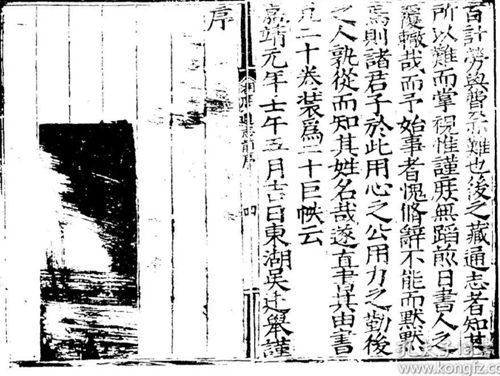 百計勞與費至難也後之藏通志者知其
所以難而掌視惟謹庶無蹈前日書人之
覆轍哉而予始事者愧脩辭不能而默默
焉則諸君子於此用心之公用力之勤後
之人孰從而知其姓名哉遂直書其由書
凡二十卷裝爲二十巨帙云
嘉靖元年壬午五月吉日東湖吳廷舉謹
志前序 四
序
www.kongfz.co